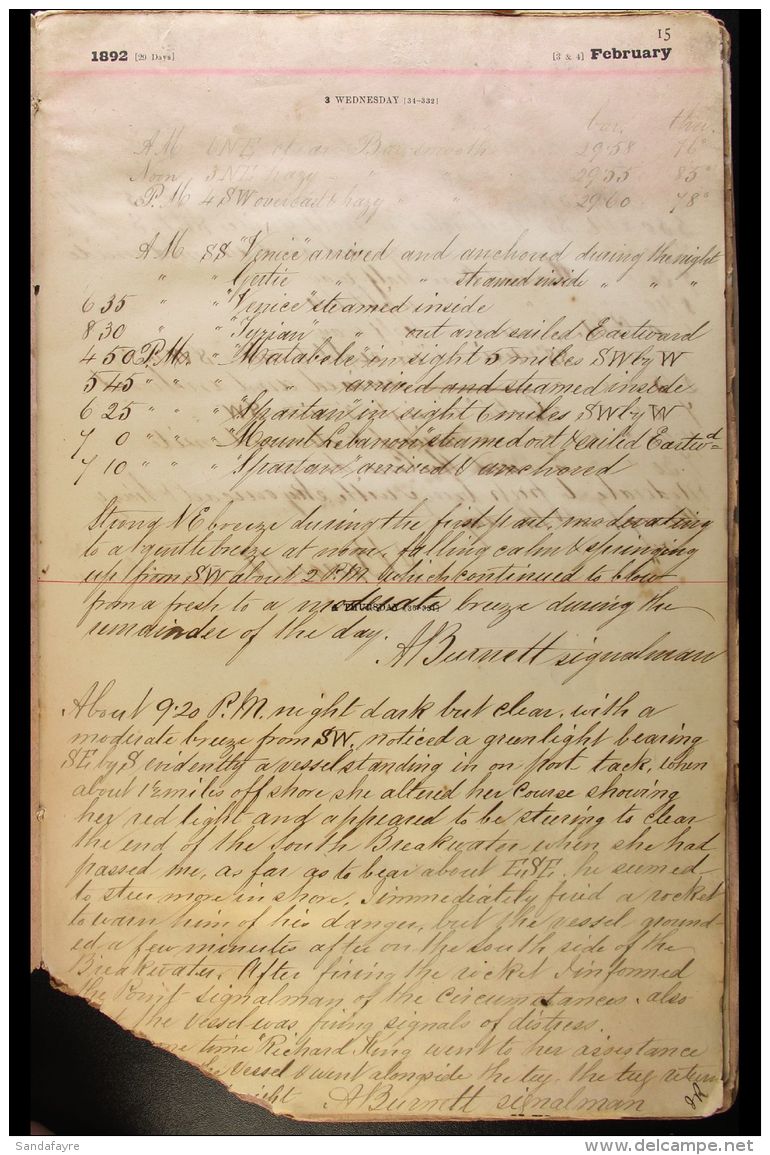 15
1892 [29 Days] [3 & 4] February
3 WEDNESDAY [34-332]
bar. ther.
A.M. 6 NE clear Bar smooth 29.58 76°
Noon 3 NE hazy " " 29.55 85°
P.M. 4 SW overcast & hazy " " 29.60 78°
A M SS "Venice" arrived and anchored during the night
" " Gertie " " steamed inside " " "
6 35 " " "Venice" steamed inside
8 30 " " "Tyrian" " out and sailed Eastward
4 50 P.M. " "Matabele" in sight 5 miles SW by W
5 45 " " " " arrived and steamed inside
6 25 " " " "Spartan" in sight 6 miles SW by W
7 0 " " " "Mount Lebanon" steamed out & sailed Eastwd
7 10 " " " "Spartan" arrived & anchored
Strong NE breeze during the first part, moderating
to a gentle breeze at noon, falling calm & springing
up from SW about 2 P.M. which continued to blow
from a fresh to a moderate breeze during the
4 THURSDAY
remainder of the day.
A Burnett signalman
About 9.20 P.M. night dark but clear, with a
moderate breeze from SW. noticed a green light bearing
SE by S evidently a vessel standing in on port tack, when
about 1½ miles off shore she altered her course showing
her red light and appeared to be steering to clear
the end of the South Breakwater when she had
passed me, as far as to bear about E.SE. he seemed
to steer more in shore. I immediately fired a rocket
to warn him of his danger, but the vessel ground-
ed a few minutes after on the south side of the
Breakwater. After firing the rocket I informed
the Point signalman of the circumstances. also
the vessel was firing signals of distress.
time "Richard King went to her assistance
vessel & went alongside the tug. the tug return
A Burnett signalman
Sandafayre
www.delcampe.net